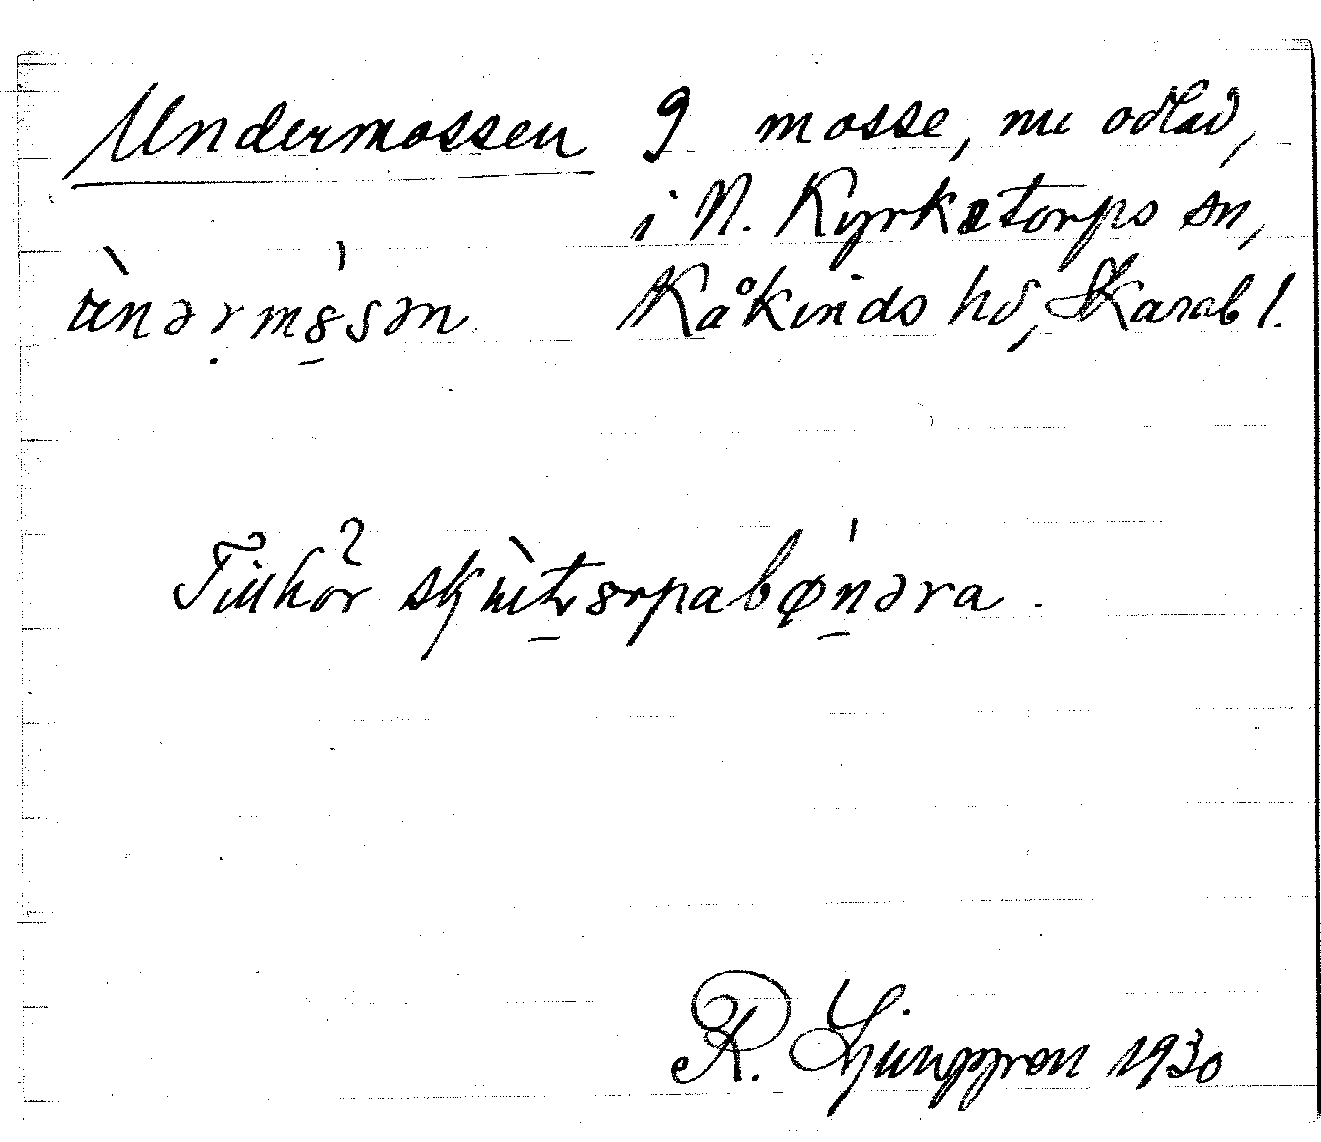 Undermossen 9 mosse, nu odlad,
i N. Kyrketorps sn,
ùnərmósən Kåkinds hd, Skarab l.
Tillhör
R. Ljunggren 1930